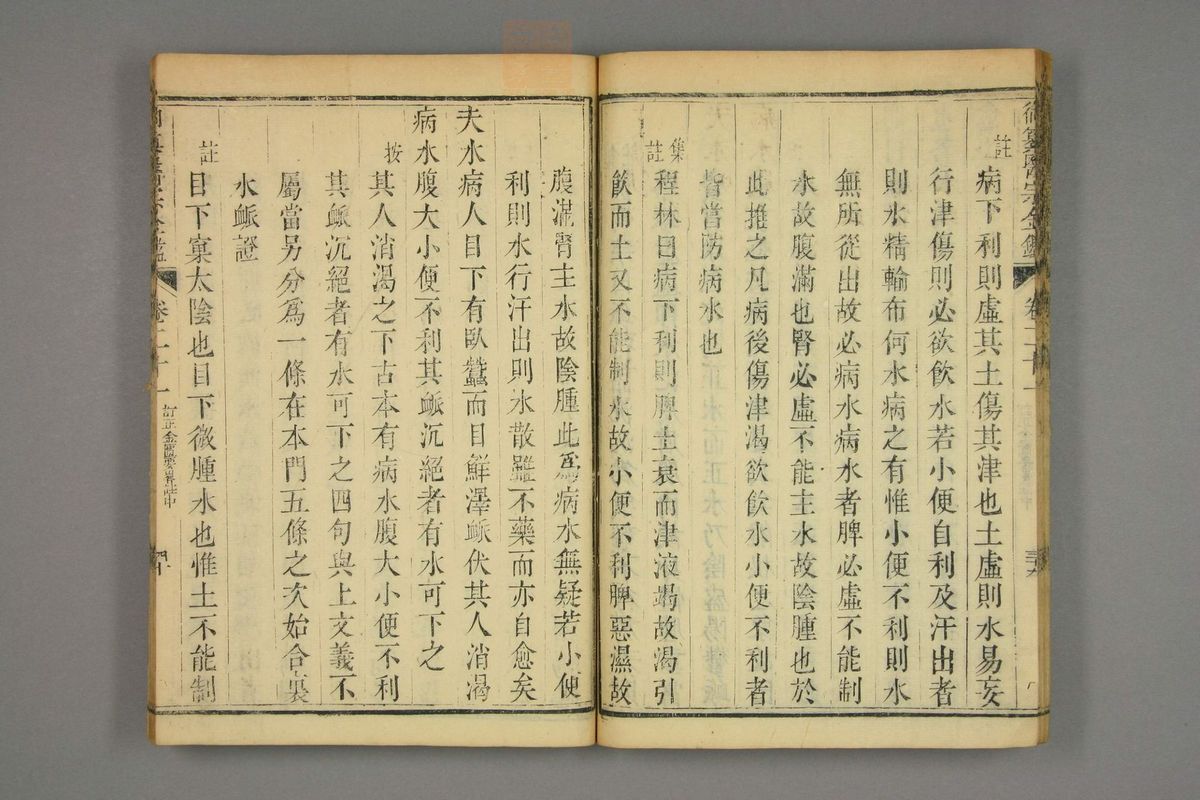 註
病下利則虛其土傷其津也土虛則水易妄
行津傷則必欲飲水若小便自利及汗出者
則水精輸布何水病之有惟小便不利則水
無所從出故必病水病水者脾必虛不能制
水故腹滿也腎必虛不能主水故陰腫也於
此推之凡病後傷津渴欲飲水小便不利者
皆當防病水也
集註
程林曰病下利則脾土衰而津液竭故渴引
飲而土又不能制水故小便不利脾惡濕故
腹滿腎主水故陰腫此為病水無疑若小便
利則水行汗出則水散雖不藥而亦自愈矣
夫水病人目下有臥蠶面目鮮澤脈伏其人消渴
病水腹大小便不利其脈沉絕者有水可下之
按
其人消渴之下古本有病水腹大小便不利
其脈沉絕者有水可下之四句與上文義不
屬當另分為一條在本門五條之次始合裏
水脈證
註
目下窠太陰也目下微腫水也惟土不能制
御纂醫宗金鑑
卷二十一
訂正金匱要略註中